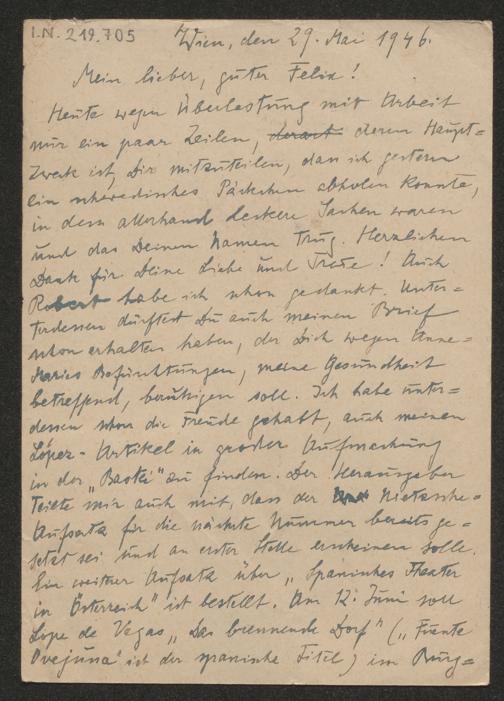 I.N. 219.705
Wien, den 29. Mai 1946.
Mein lieber, guter Felix!
Heute wegen Überlastung mit Arbeit
nur ein paar Zeilen, derart deren Haupt=
zweck ist, Dir mitzuteilen, dass ich gestern
ein schwedisches Päckchen abholen konnte,
in dem allerhand leckere Sachen waren
und das Deinen Namen trug. Herzlichen
Dank für Deine Liebe und Treue! Auch
Robert habe ich schon gedankt. Unter=
dessen dürftest Du auch meinen Brief
schon erhalten haben, der Dich wegen Anne=
maries Befürchtungen, meine Gesundheit
betreffend, beruhigen soll. Ich habe unter=
dessen schon die Freude gehabt, auch meinen
Lópes-Artikel in großer Aufmachung
in der „Bastei" zu finden. Der Herausgeber
teilte mir auch mit, dass der Nietzsche=
Aufsatz für die nächste Nummer bereits ge=
setzt sei und an erster Stelle erscheinen solle.
Ein weiterer Aufsatz über „Spanisches Theater
in Österreich" ist bestellt. Am 12. Juni soll
Lope de Vegas „Das brennende Dorf" („Fuente
Ovejuna" ist der spanische Titel) im Burg=